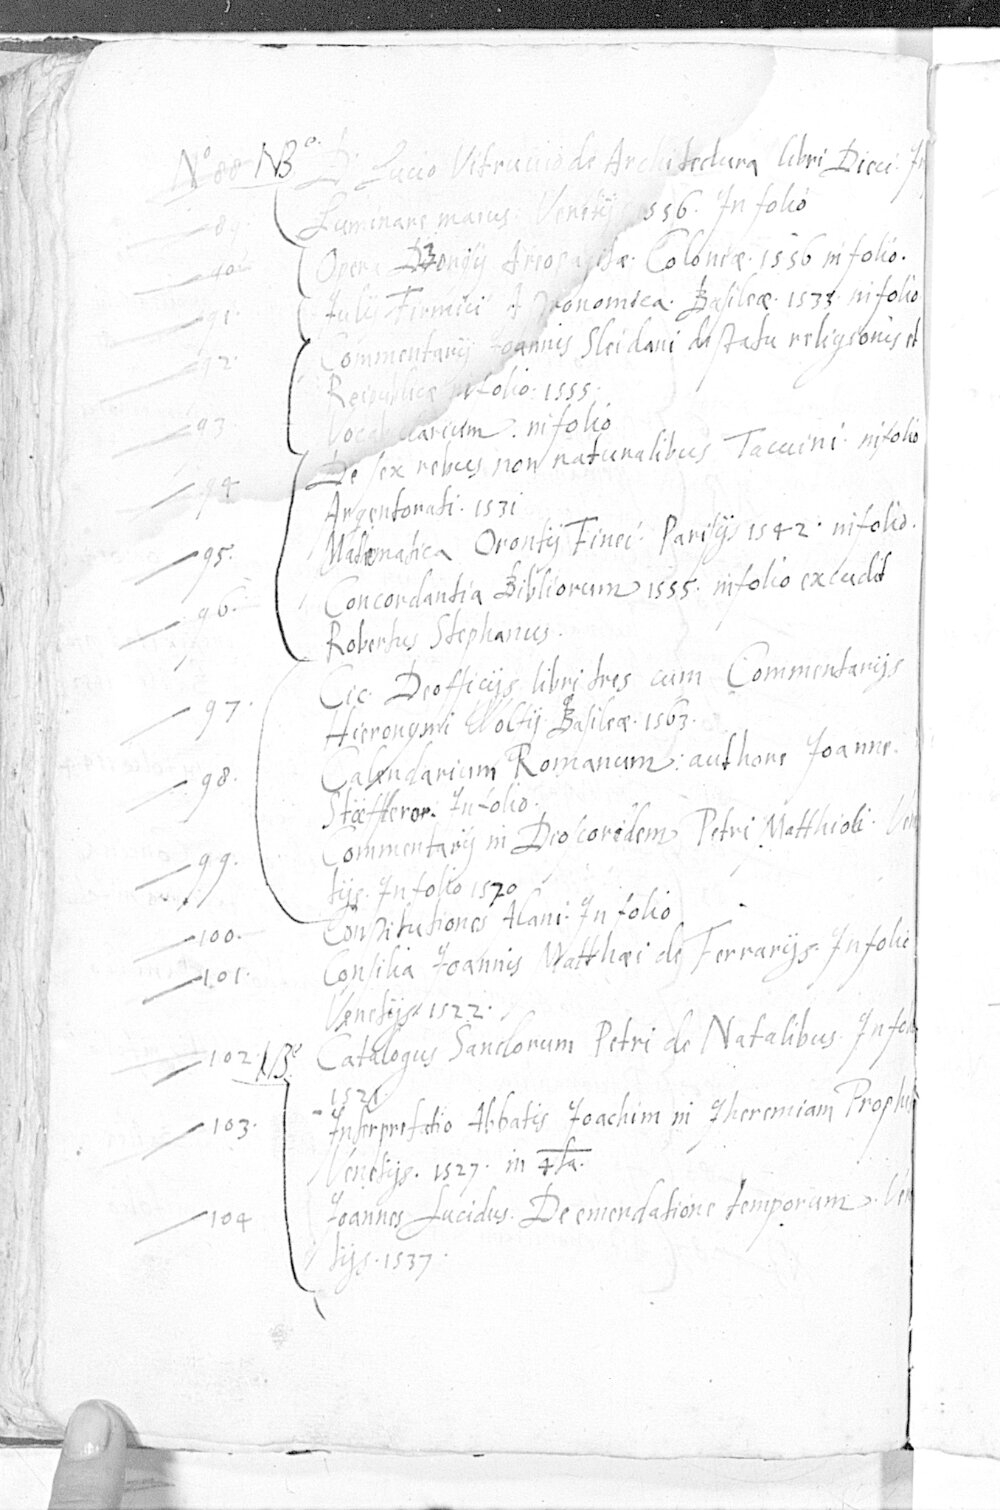 No 88 NB.e D. Lucio Vitruvio de Architectura libri Dieci. In
89 Luminare maius. Venetijs 1556. In folio
90 Opera Dionysij Areopagitæ. Coloniæ. 1556 in folio.
91. Julij Firmici Astronomica. Basileæ. 1533. in folio
92. Commentarij Joannis Sleidani de statu religionis et
Reipublicæ in folio. 1555.
93. Vocabularium. in folio
94 De sex rebus non naturalibus Taccuini. in folio
Argentorati. 1531
95. Matematica Orontij Finei. Parisijs 1542. in folio.
96. Concordantia Bibliorum 1555. in folio excudit
Robertus Stephanus.
97. Cic. De officijs libri tres cum Commentarijs
Hieronymi Wolfij Basileæ. 1563.
98. Calendarium Romanum: authore Joanne.
Stoffleror. In folio.
99. Commentarij in Dioscoridem Petri Matthioli. Ven
tijs. In folio 1570
100. Constitutiones Alani. In folio
101. Consilia Joannis Matthæi de Ferrarijs. In folio
Venetijs. 1522.
102. NB.e Catalogus Sanctorum Petri de Natalibus. In fol
1521.
103. Interpretatio Abbatis Joachim in Iheremiam Proph
Venetijs. 1527. in 4ta.
104 Joannes Lucidus. De emendatione temporum. Ven
tijs. 1537.